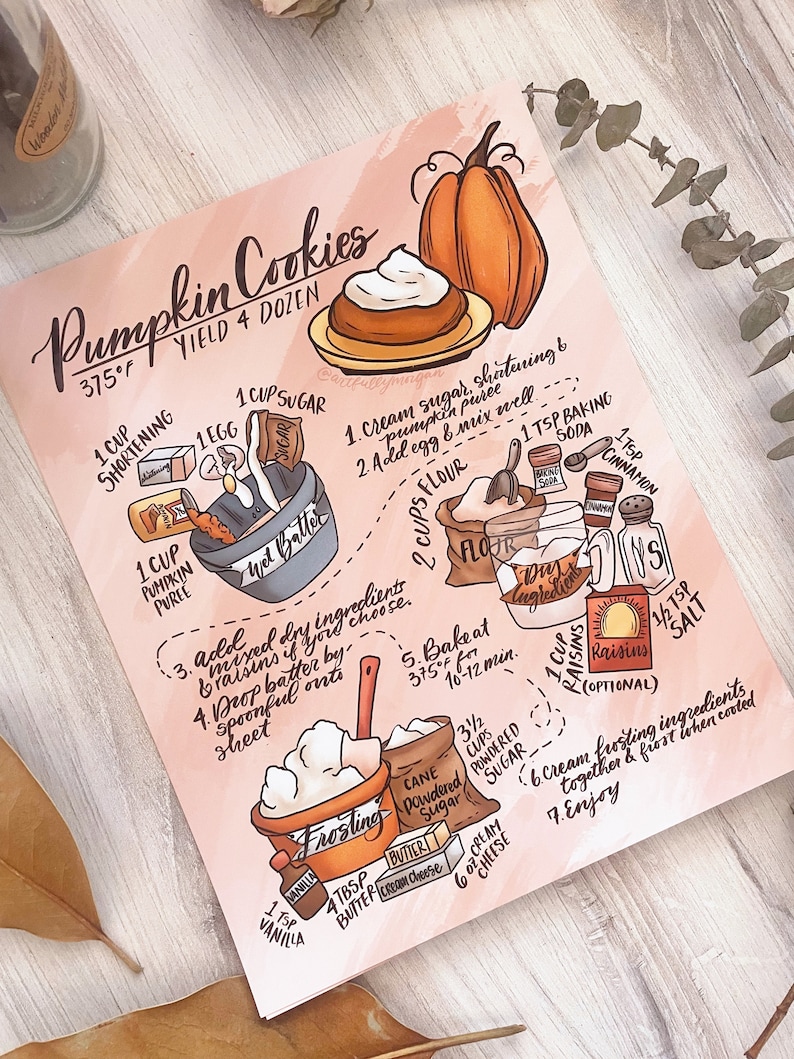 Wooden
Pumpkin Cookies
375°F YIELD 4 DOZEN
@artfullymorgan
1 CUP
SHORTENING
shortening
1 EGG
1 CUP SUGAR
SUGAR
PUMPKIN
1 CUP
PUMPKIN
PUREE
Wet Batter
1. Cream sugar, shortening &
pumpkin puree
2. Add egg & mix well.
2 CUPS FLOUR
FLOUR
1 TSP BAKING
SODA
BAKING
SODA
1 TSP
CINNAMON
CINNAMON
Dry
Ingredients
S
1/2 TSP
SALT
1 CUP
RAISINS
(OPTIONAL)
Raisins
3. add
mixed dry ingredients
& raisins if you choose.
4. Drop batter by
spoonful onto
sheet
5. Bake at
375°F for
10-12 min.
Frosting
CANE
Powdered
Sugar
3 1/2
CUPS
POWDERED
SUGAR
VANILLA
1 TSP
VANILLA
BUTTER
4 TBSP
BUTTER
cream cheese
6 OZ CREAM
CHEESE
6. Cream frosting ingredients
together & frost when cooled
7. Enjoy